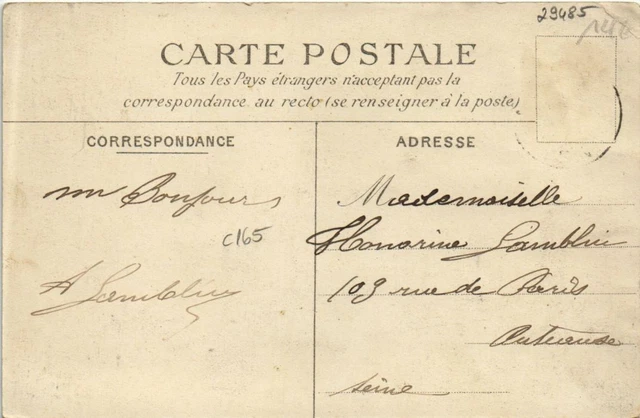 29485
CARTE POSTALE
Tous les Pays étrangers n'acceptant pas la
correspondance au recto (se renseigner à la poste)
CORRESPONDANCE
ADRESSE
un Bonjour
C165
A Lamblin
Mademoiselle
Honorine Lamblin
109 rue de Paris
Seine